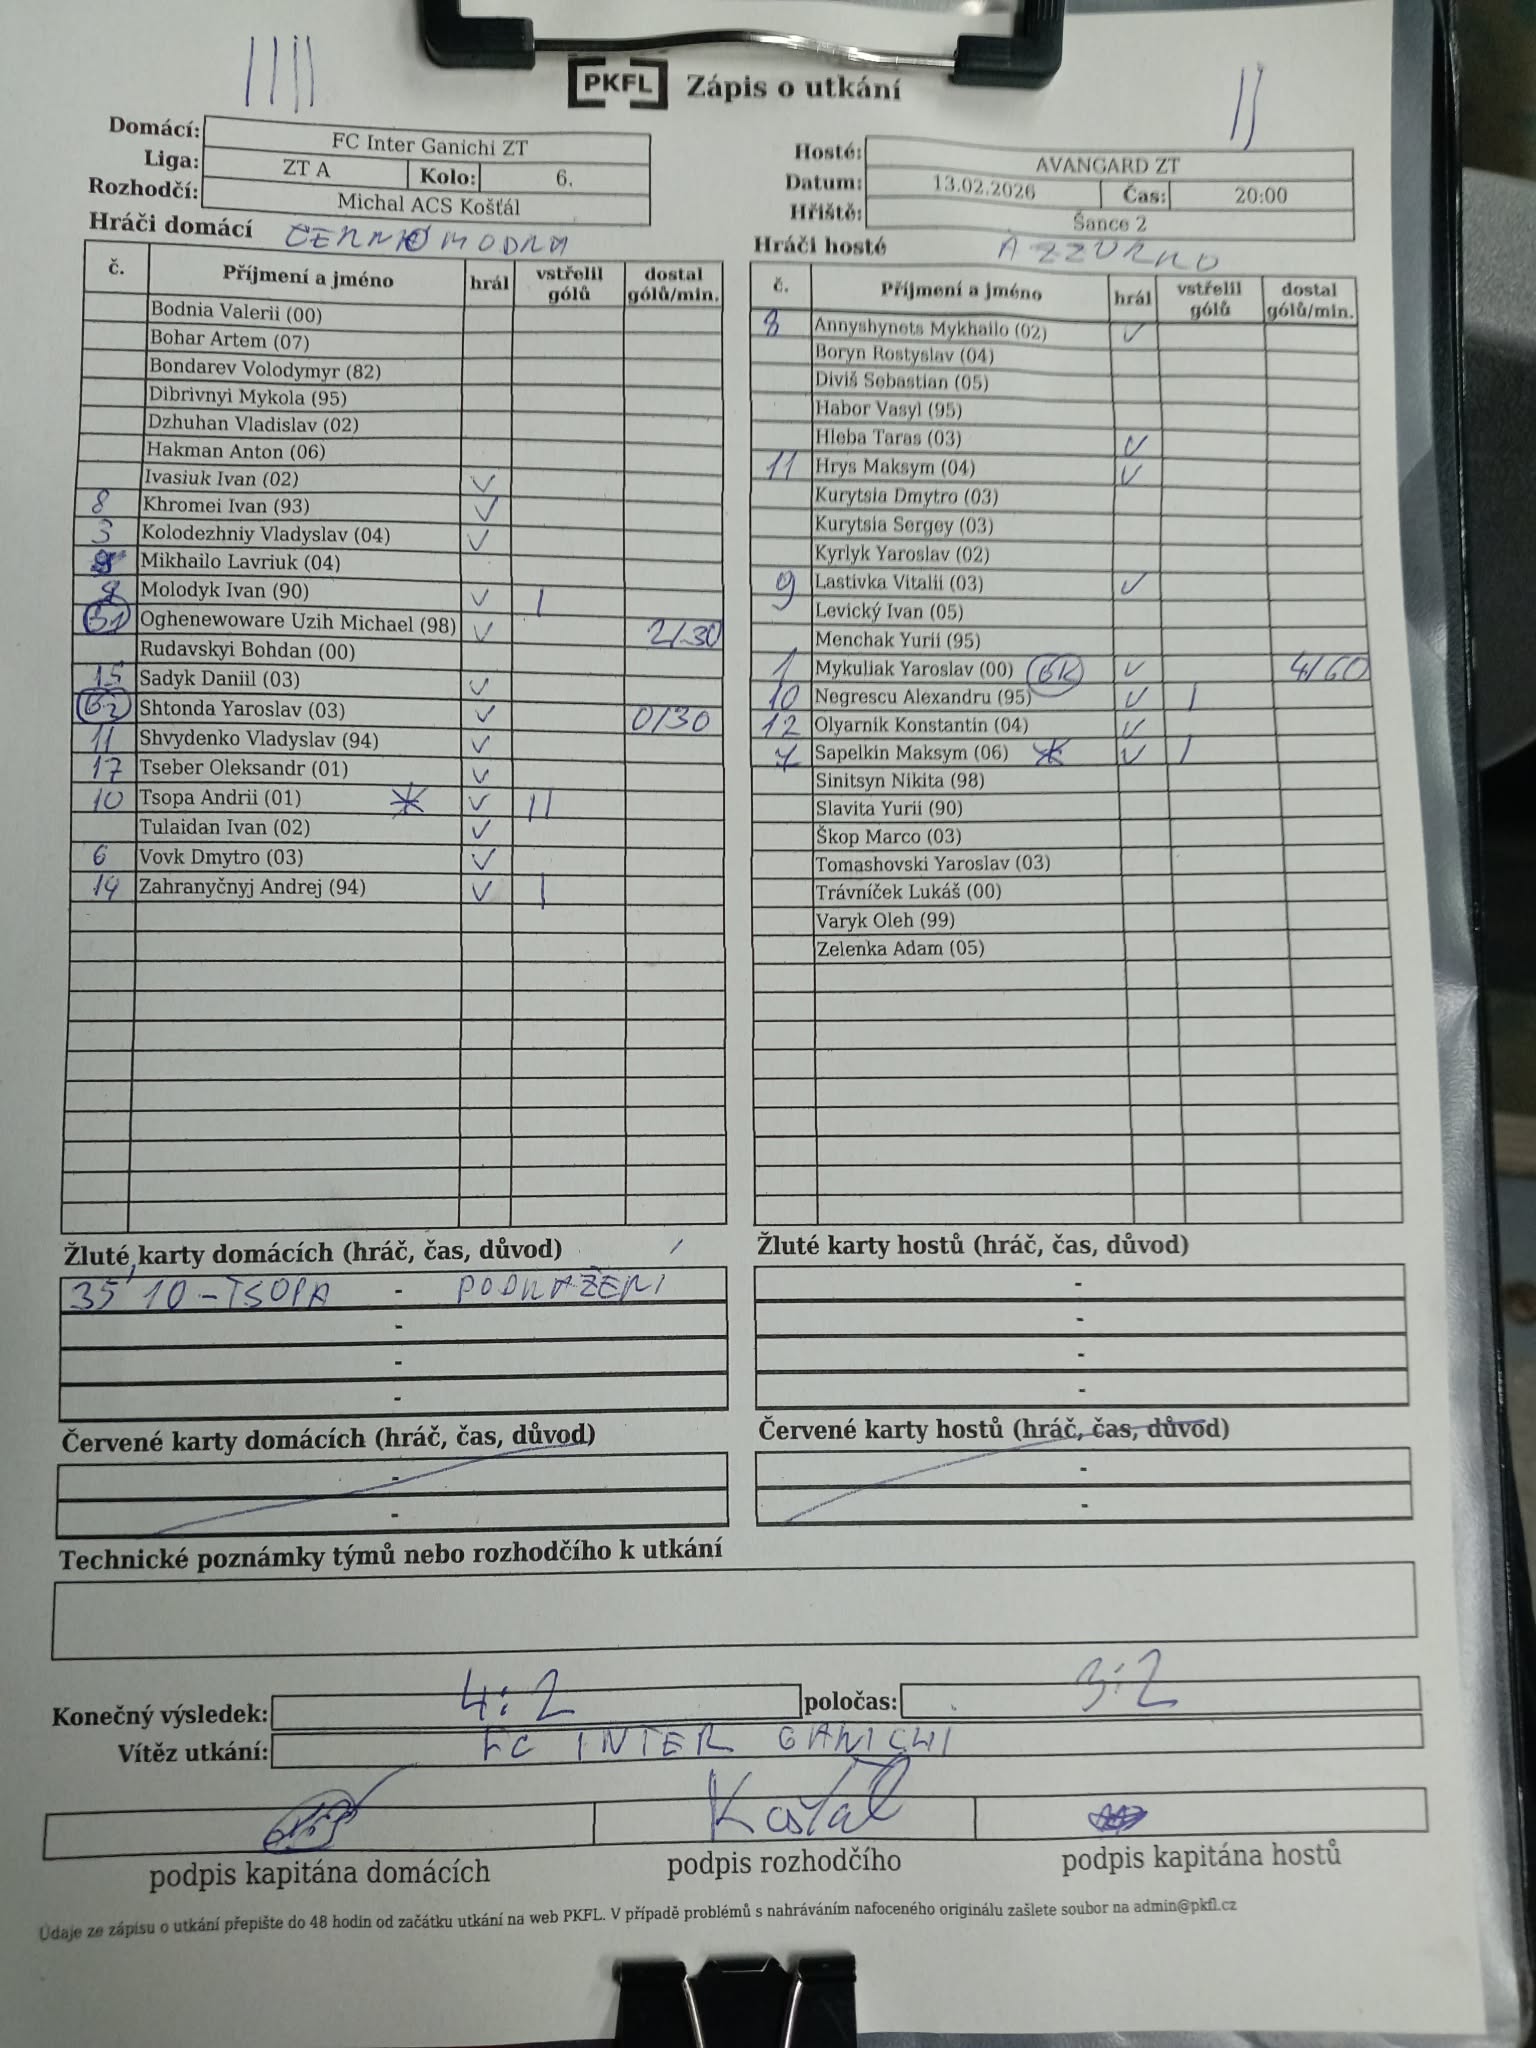 PKFL Zápis o utkání
Domácí: FC Inter Ganichi ZT
Liga: ZT A Kolo: 6.
Rozhodčí: Michal ACS Košťál
Hosté: AVANGARD ZT
Datum: 13.02.2026 Čas: 20:00
Hřiště: Šance 2
Hráči domácí
č. Příjmení a jméno hrál vstřelil gólů dostal gólů/min.
Bodnia Valerii (00)
Bohar Artem (07)
Bondarev Volodymyr (82)
Dibrivnyi Mykola (95)
Dzhuhan Vladislav (02)
Hakman Anton (06)
Ivasiuk Ivan (02) ✓
8 Khromei Ivan (93) ✓
3 Kolodezhniy Vladyslav (04) ✓
Mikhailo Lavriuk (04)
Molodyk Ivan (90) ✓ |
Oghenewoware Uzih Michael (98) ✓ 2/30
Rudavskyi Bohdan (00)
15 Sadyk Daniil (03) ✓
Shtonda Yaroslav (03) ✓ 0/30
11 Shvydenko Vladyslav (94) ✓
17 Tseber Oleksandr (01) ✓
10 Tsopa Andrii (01) * ✓ ||
Tulaidan Ivan (02) ✓
6 Vovk Dmytro (03) ✓
14 Zahranyčnyj Andrej (94) ✓ |
Hráči hosté AZZURRO
č. Příjmení a jméno hrál vstřelil gólů dostal gólů/min.
Annyshynets Mykhailo (02) ✓
Boryn Rostyslav (04)
Diviš Sebastian (05)
Habor Vasyl (95)
Hleba Taras (03) ✓
11 Hrys Maksym (04) ✓
Kurytsia Dmytro (03)
Kurytsia Sergey (03)
Kyrlyk Yaroslav (02)
9 Lastivka Vitalii (03) ✓
Levický Ivan (05)
Menchak Yurii (95)
1 Mykuliak Yaroslav (00) BK ✓ 4/60
10 Negrescu Alexandru (95) ✓ |
12 Olyarnik Konstantin (04) ✓
7 Sapelkin Maksym (06) * ✓ |
Sinitsyn Nikita (98)
Slavita Yurii (90)
Škop Marco (03)
Tomashovski Yaroslav (03)
Trávníček Lukáš (00)
Varyk Oleh (99)
Zelenka Adam (05)
Žluté karty domácích (hráč, čas, důvod)
35' 10 - TSOPA - PODRAŽENÍ
-
-
-
Žluté karty hostů (hráč, čas, důvod)
-
-
-
-
Červené karty domácích (hráč, čas, důvod)
-
-
Červené karty hostů (hráč, čas, důvod)
-
-
Technické poznámky týmů nebo rozhodčího k utkání
Konečný výsledek: 4:2 poločas: 3:2
Vítěz utkání: FC INTER GANICHI
Košťál
podpis kapitána domácích podpis rozhodčího podpis kapitána hostů
Údaje ze zápisu o utkání přepište do 48 hodin od začátku utkání na web PKFL. V případě problémů s nahráváním nafoceného originálu zašlete soubor na admin@pkfl.cz